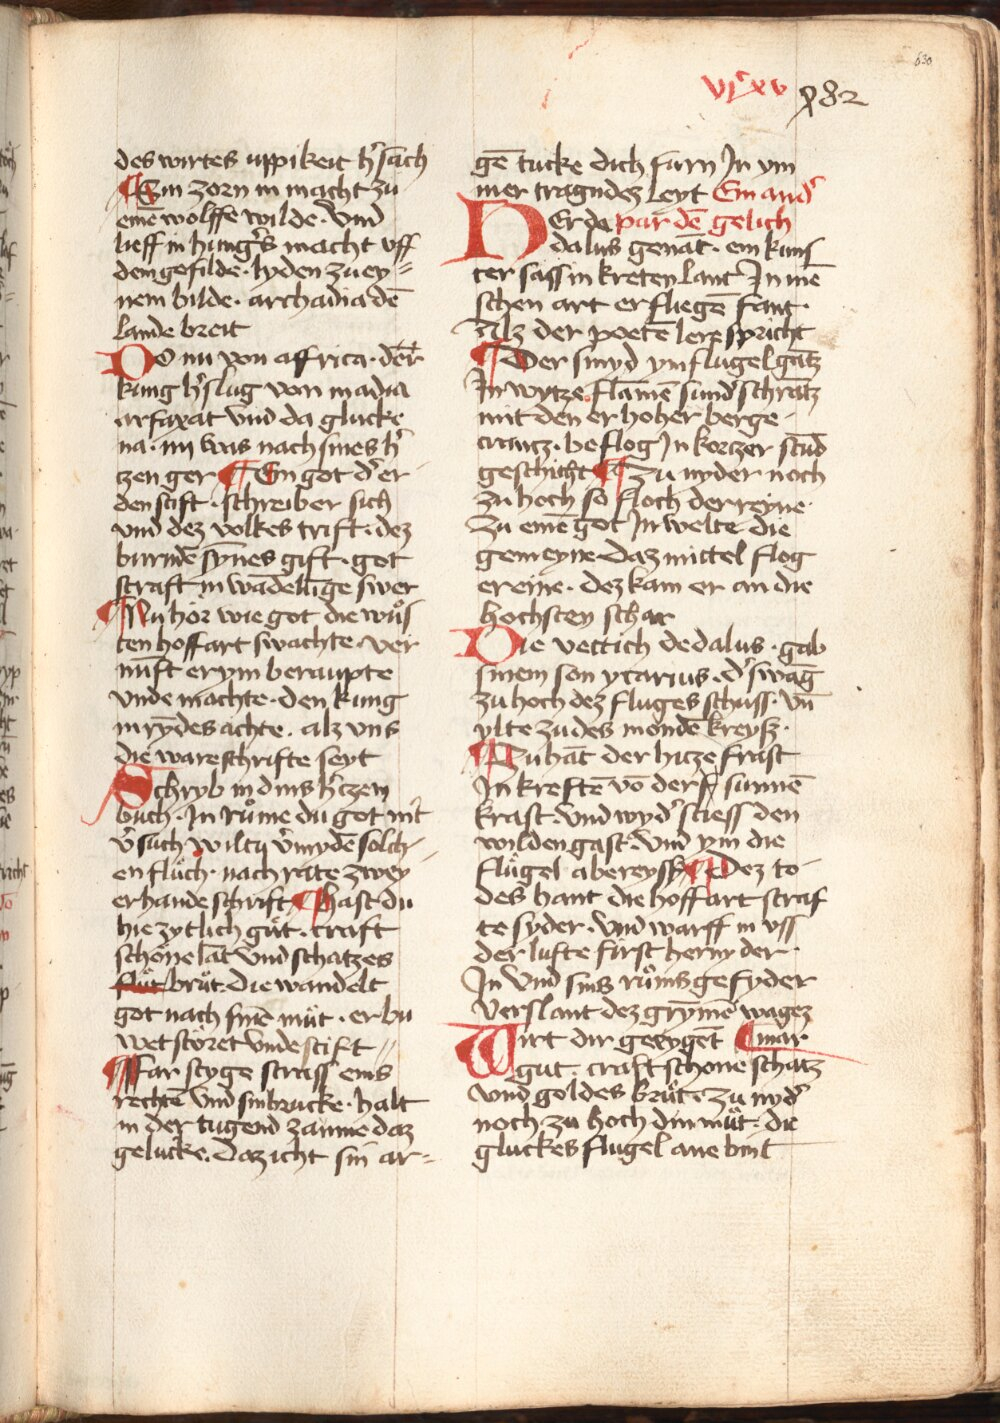 630
vicxv
des wirtes uppikeit h᷑ sach
¶ Ein zorn in macht zu
eine᷑ wolffe wilde · Vnd
lieff in hung᷑s macht vff
dem gefilde · lyden zu ey=
nem bilde · archadia de᷑
lande breit
DO nu von affrica · der
kung h᷑ slug von madia
arfaxat vnd da glucke
na · im was nach sines h᷑
tzen ger ¶ Ein got d᷑ er
den stift · schreiber sich
vnd dez volkes trift · dez
burnde᷑ synes gift · got
straft in wandellige swer
¶ Nu hör wie got die wuͦs
ten hoffart swachte · ver
nu᷑ft er ym beraupte
vnde machte · den kung
in ryndes achte · alz vns
die ware schrifte seyt
Schryb in dins h᷑tzen
buch · In ruͦme du got ni᷑t
v᷑such wiltu v᷑myde᷑ solch=
en fluͦch · nach rate zwey
erhande schrift ¶ hast du
hie zytlich guͦt · craft
schöne lant vnd schatzes
fluͦt bruͦt · die wandelt
got nach sine᷑ muͦt · er bu
wet störet vnde stift
¶ Far styge strass eins
rechte᷑ vnd sin brucke · halt
in der tugend zaume daz
gelucke · Daz icht sin ar=
ge᷑ tucke dich furn In ym
mer tragndez leyt Ein and᷑
DEr da par de᷑ gelich
dalus gena᷑t · ein kuns
ter sass in kreten lant In me᷑
schen art er fliege᷑ fant ·
Alz der poete᷑ lere spricht
¶ Der smyd ym flugel gantz
In wytze flame᷑ sund᷑ schrantz
mit den er hoher berge
crantz · beflog In kortzer stund
geschicht ¶ Zu nyder noch
zu hoch so floch der reyne ·
Zu eine᷑ got In welte die
gemeyne · Daz mittel flog
er eine · dez kam er an die
hochsten schar
Die vettich dedalus · gab
sinem son ycarius · d᷑ swang
zu hoch dez fluges schuss · vn᷑
ylte zu des monde᷑ kreysz ·
¶ Zu hant der hitze frast
In krefte᷑ vo᷑ der sunne᷑
krast · Vnd wyd᷑ stiess den
wilden gast · Vnd ym die
fluͦgel abereyss ¶ Dez to=
des hant die hoffart straf
te syder · Vnd warff in vss
der lufte first her nyder ·
In vnd sins ruͦms gefyder
verslant dez gry᷑me᷑ wagez
Wirt dir geeyget ¶ mar
gut · craft schone schatz
vnd goldes bruͦt · zu nyd᷑
noch zu hoch din muͦt · die
gluckes flugel ane bint